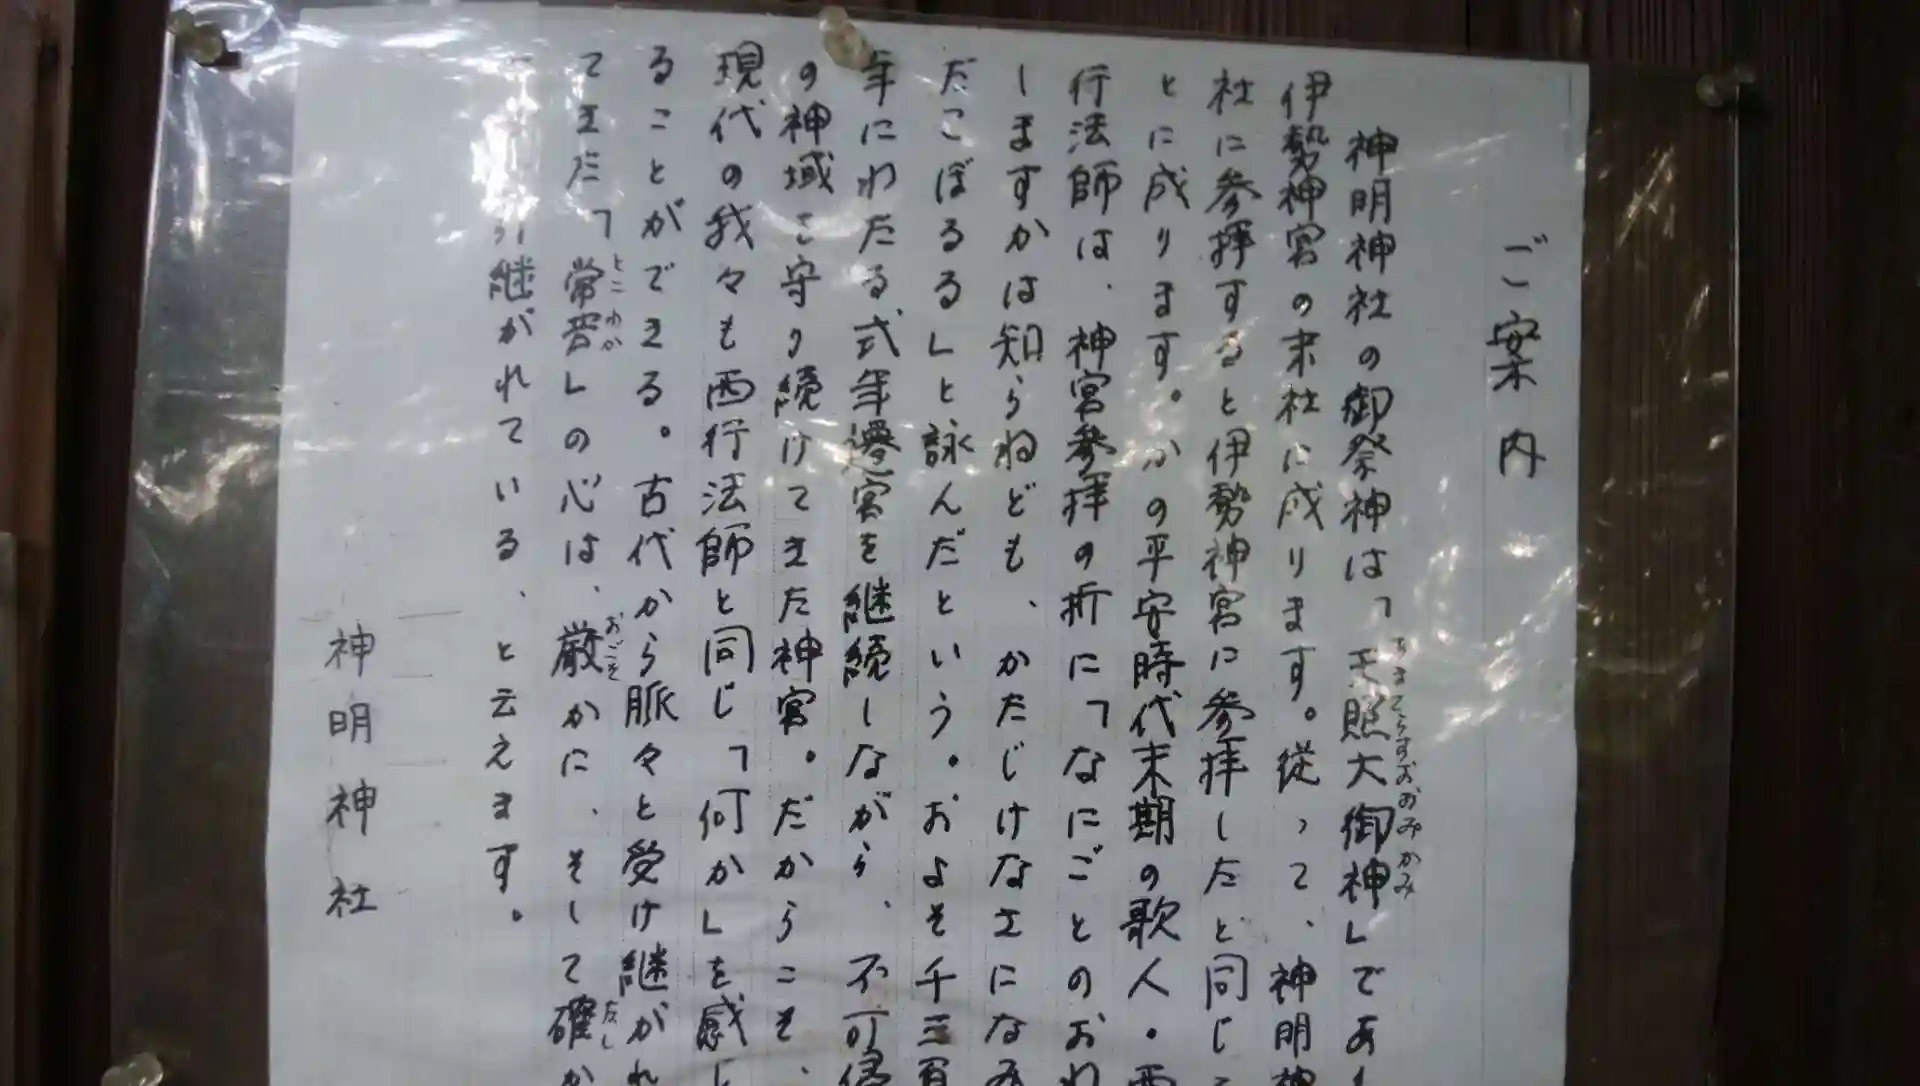 ご案内
神明神社の御祭神は「天照大御神」であ
あまてらすおおみかみ
伊勢神宮の末社に成ります。従って、神明神
社に参拝すると伊勢神宮に参拝したと同じこ
とに成ります。かの平安時代末期の歌人・西
行法師は、神宮参拝の折に「なにごとのおわ
しますかは知らねども、かたじけなさになみ
だこぼるる」と詠んだという。およそ千三百
年にわたる式年遷宮を継続しながら、不可侵
の神域を守り続けてきた神宮。だからこそ、
現代の我々も西行法師と同じ「何か」を感じ
ることができる。古代から脈々と受け継がれ
てきた「常若」の心は、厳かに、そして確か
とこわか
おごそ
たし
継がれている、と云えます。
神明神社